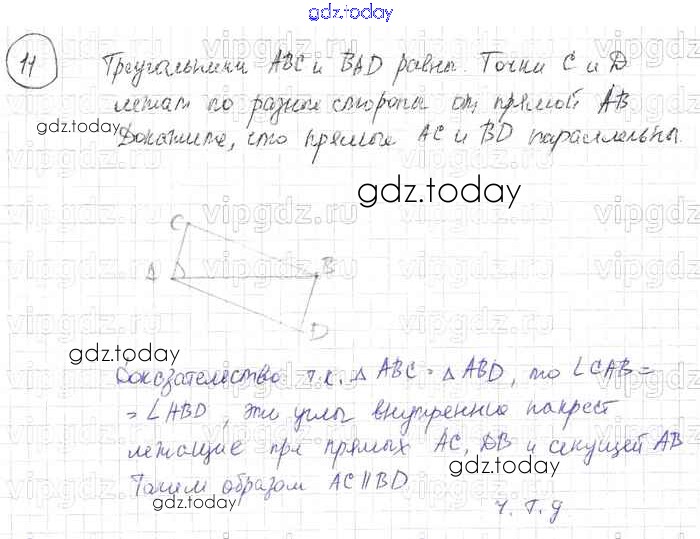 gdz.today
11
Треугольники ABC и BAD равны. Точки C и D
лежат по разные стороны от прямой AB
gdz.today
Докажите, что прямые AC и BD параллельны.
gdz.today
C
A
B
D
gdz.today
Доказательство т.к. △ ABC = △ ABD, то ∠CAB =
= ∠ABD, эти углы внутренние накрест
лежащие при прямых AC, DB и секущей AB
gdz.today
Таким образом AC || BD
ч.т.д